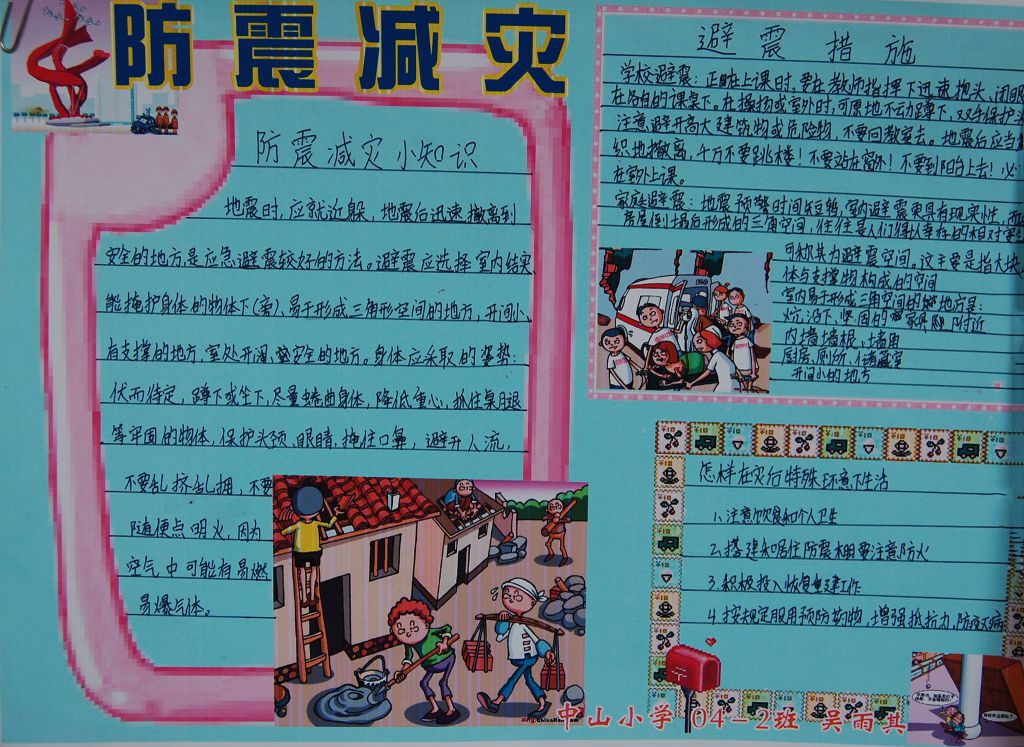 防震减灾
防震减灾小知识
地震时,应就近躲,地震后迅速撤离到
安全的地方,是应急避震较好的方法。避震应选择室内结实、
能掩护身体的物体下(旁)、易于形成三角形空间的地方,开间小、
有支撑的地方,室处开阔、安全的地方。身体应采取的姿势:
伏而待定,蹲下或坐下,尽量蜷曲身体,降低重心,抓住桌腿
等牢固的物体,保护头颈、眼睛,掩住口鼻,避开人流,
不要乱挤乱拥,不要
随便点明火,因为
空气中可能有易燃
易爆气体。
避震措施
学校避震:正在上课时,要在教师指挥下迅速抱头、闭眼
在各自的课桌下,在操场或室外时,可原地不动蹲下,双手保护头
注意避开高大建筑物或危险物,不要回教室去。地震后应当
织地撤离,千万不要跳楼!不要站在窗外!不要到阳台上去!必
在室外上课。
家庭避震:地震预警时间短暂,室内避震更具有现实性,而
房屋倒塌后形成的三角空间,往往是人们得以幸存的相对安全
可称其为避震空间。这主要是指大块
体与支撑物构成的空间
室内易于形成三角空间的地方是:
炕沿下、坚固的家具附近
内墙墙根,墙角
厨房、厕所、储藏室
开间小的地方
怎样在灾后特殊环境下生活
1.注意饮食和个人卫生
2.搭建和居住防震棚要注意防火
3.积极投入恢复重建工作
4.按规定服用预防药物,增强抵抗力,防疫灭病
中山小学 04-2班 吴雨其